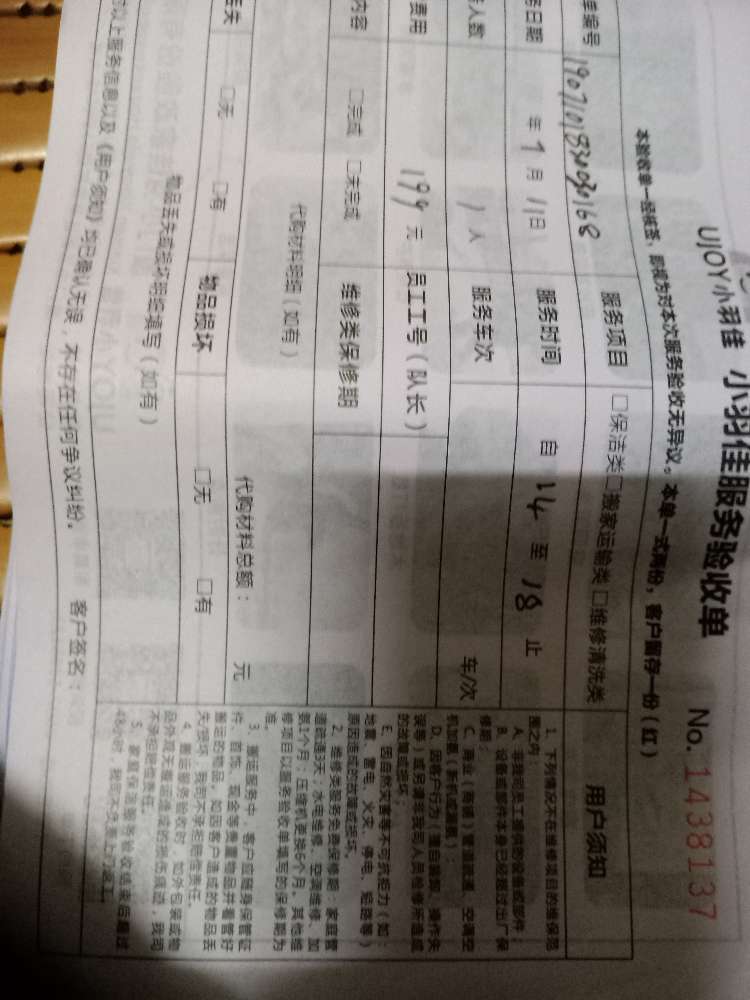 UJOY小羽佳 小羽佳服务验收单 No.1438137
本验收单一经核签，即视为对本次服务验收无异议。本单一式两份，客户留存一份（红）
单编号 服务项目 □保洁类□搬家运输类□维修清洗类
日期 年 7 月 11 日 服务时间 自 14 至 18 止
人数 1 人 服务车次 车/次
费用 199 元 员工工号（队长）
内容 □完成 □未完成 维修类保修期
代购材料明细（如有） 代购材料总额： 元
丢失 □无 □有 物品损坏 □无 □有
物品丢失或损坏明细填写（如有）
以上服务信息以及《用户须知》均已确认无误，不存在任何争议纠纷。 客户签名：
用户须知
1. 下列情况不在维修项目的维保范
围之内：
A. 非我司员工提供的设备或部件；
B. 设备或部件本身已经超过出厂保
修期；
C. 商业（商铺）管道疏通、空调空
机加氨（新机或漏氨）；
D. 因客户行为（擅自装卸、操作失
误等）或另请非我司人员检修所造成
的故障或损坏；
E. 因自然灾害等不可抗拒力（如：
地震、雷电、火灾、停电、短路等）
原因造成的故障或损坏。
2. 维修类服务免费保修期：家庭管
道疏通3天，水电维修、空调维修、加
氨1个月；压缩机更换6个月，其他维
修项目以服务验收单填写的保修期为
准。
3. 搬运服务中，客户应随身保管证
件、首饰、现金等贵重物品并看管好
搬运的物品，如因客户造成的物品丢
失/损坏，我司不承担赔偿责任。
4. 搬运服务验收时，如外包装或物
品外观无搬运造成的损伤痕迹，我司
不承担赔偿责任。
5. 家庭保洁服务验收结束后超过
48小时，我司不负责上门返工。